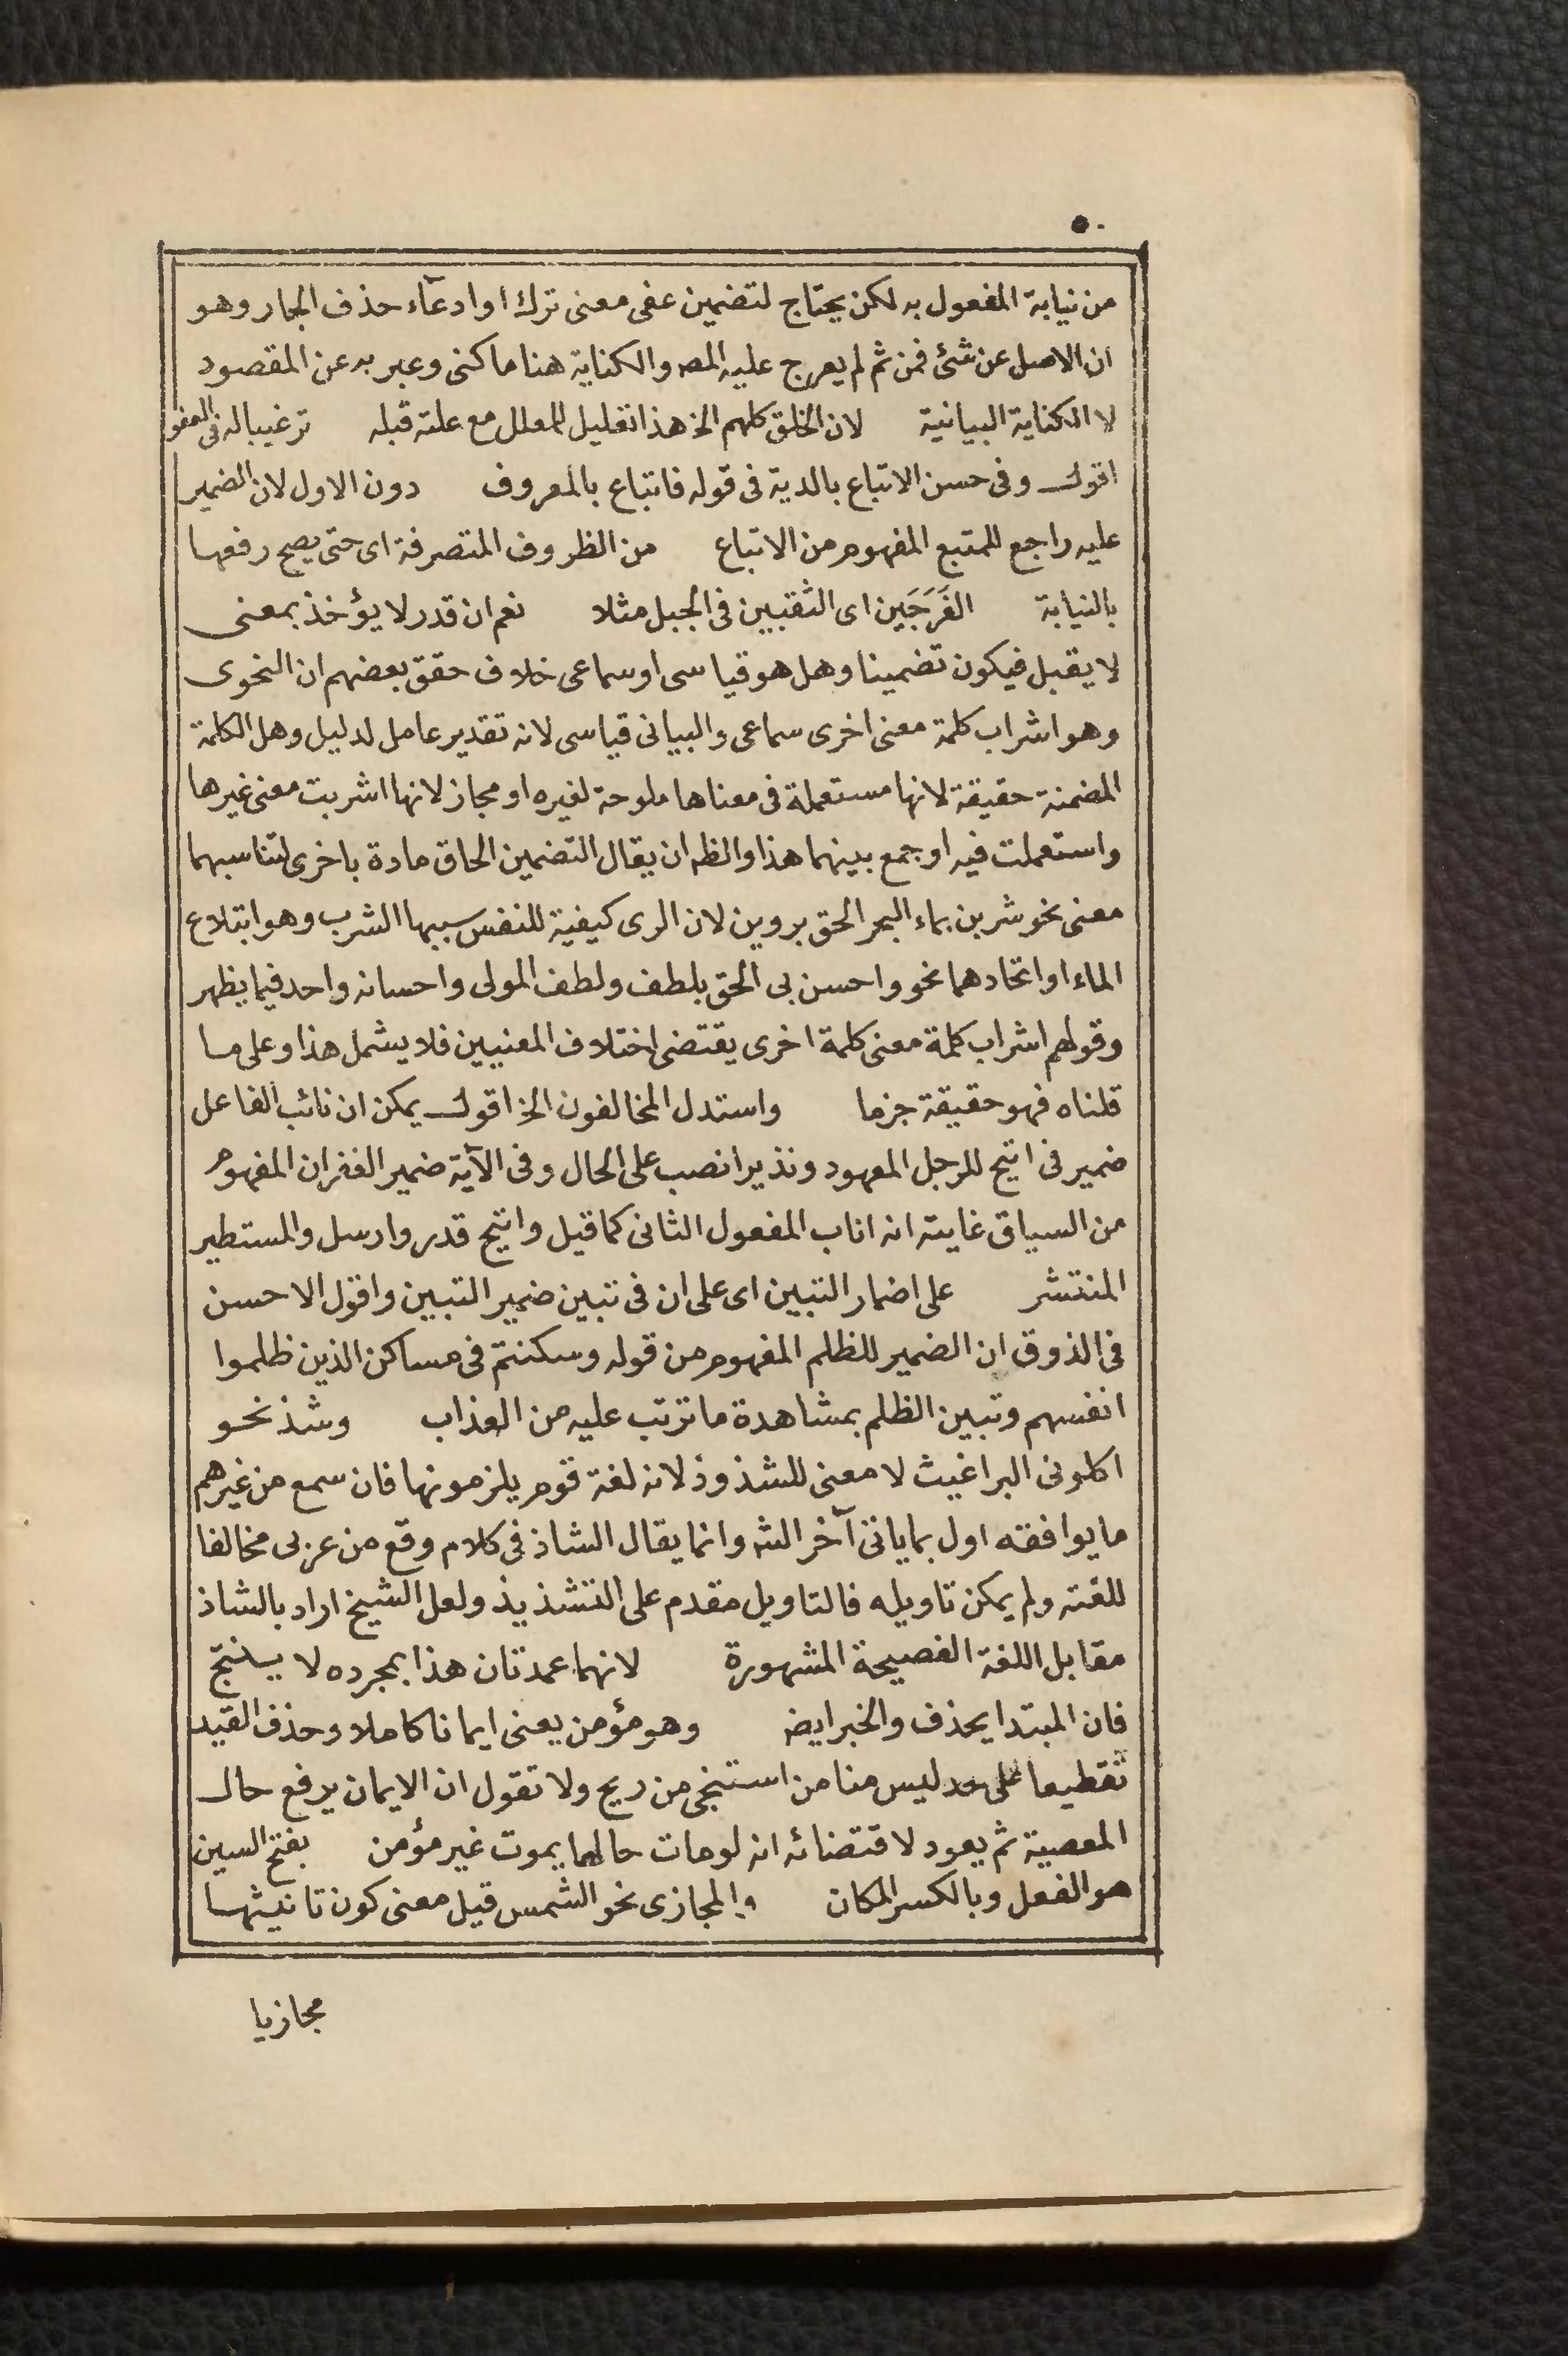 ٥٠
من نيابة المفعول به لكن يحتاج لتضمين عفى معنى ترك او ادعآء حذف الجار وهو
ان الاصل عن شئ فمن ثم لم يعرج عليه المصـ والكناية هنا ما كنى وعبر به عن المقصود
لا الكناية البيانية لان الخلق كلهم الخ هذا تعليل للمعلل مع علته قبله ترغيبا له فى العفو
اقول وفى حسن الاتباع بالدية فى قوله فاتباع بالمعروف دون الاول لان الضمير
عليه راجع للمتبع المفهوم من الاتباع من الظروف المتصرفة اى حتى يصح رفعها
بالنيابة الفَرَجَين اى الثقبين فى الجبل مثلا نعم ان قدر لا يؤخذ بمعنى
لا يقبل فيكون تضمينا وهل هو قياسى او سماعى خلاف حقق بعضهم ان النحوى
وهو اشراب كلمة معنى اخرى سماعى والبيانى قياسى لانه تقدير عامل لدليل وهل الكلمة
المضمنة حقيقة لانها مستعملة فى معناها ملوحة لغيره او مجاز لانها اشربت معنى غيرها
واستعملت فيه او جمع بينهما هذا والظـ ان يقال التضمين الحاق مادة باخرى لتناسبهما
معنى نحو شربن بماء البحر الحق بروين لان الرى كيفية للنفس سببها الشرب وهو ابتلاع
الماء او اتحادهما نحو واحسن بى الحق بلطف ولطف المولى واحسانه واحد فيما يظهر
وقولهم اشراب كلمة معنى كلمة اخرى يقتضى اختلاف المعنيين فلا يشمل هذا وعلى ما
قلناه فهو حقيقة جزما واستدل المخالفون الخ اقول يمكن ان نائب الفاعل
ضمير فى اتيح للرجل المعهود ونذيرا نصب على الحال وفى الآية ضمير الغفران المفهوم
من السياق غايته انه اناب المفعول الثانى كما قيل واتيح قدر وارسل والمستطير
المنتشر على اضمار التبين اى على ان فى تبين ضمير التبين واقول الاحسن
فى الذوق ان الضمير للظلم المفهوم من قوله وسكنتم فى مساكن الذين ظلموا
انفسهم وتبين الظلم بمشاهدة ما ترتب عليه من العذاب وشذ نحو
اكلونى البراغيث لا معنى للشذوذ لانه لغة قوم يلزمونها فان سمع من غيرهم
ما يوافقه اول بما ياتى آخر الشـ وانما يقال الشاذ فى كلام وقع من عربى مخالفا
للغته ولم يمكن تاويله فالتاويل مقدم على التشذيذ ولعل الشيخ اراد بالشاذ
مقابل اللغة الفصيحة المشهورة لانهما عمدتان هذا بمجرده لا ينتج
فان المبتدا يحذف والخبر ايضـ وهو مؤمن يعنى ايمانا كاملا وحذف القيد
تفظيعا على حد ليس منا من استنجى من ريح ولا تقول ان الايمان يرفع حال
المعصية ثم يعود لاقتضائه انه لو مات حالها يموت غير مؤمن بفتح السين
هو الفعل وبالكسر المكان والمجازى نحو الشمس قيل معنى كون تانيثها
مجازيا